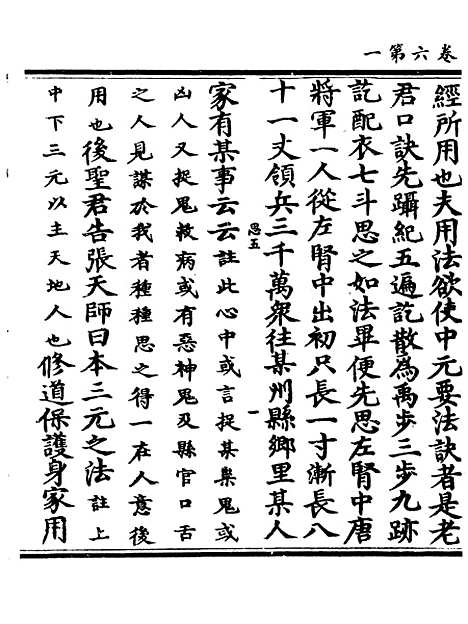 卷六第一
經所用也夫用法欲使中元要法訣者是老
君口訣先躡紀五遍訖散為禹步三步九跡
訖配衣七斗思之如法畢便先思左腎中唐
將軍一人從左腎中出初只長一寸漸長八
十一丈領兵三千萬眾往某州縣鄉里某人
思五
一
家有某事云云註此心中或言捉某祟鬼或
凶人又捉鬼救病或有惡神鬼及縣官口舌
之人見謀於我者種種思之得一在人意後
用也後聖君告張天師曰本三元之法註上
中下三元以主天地人也修道保護身家用